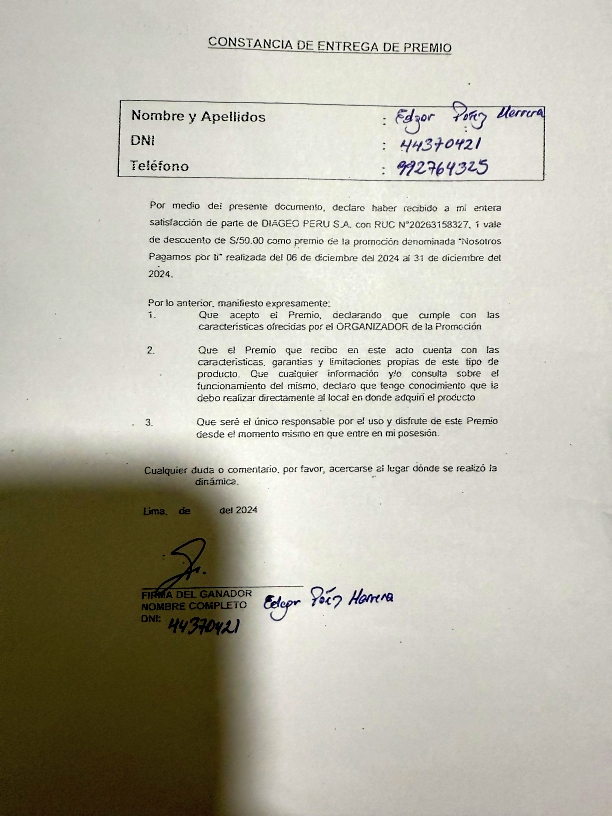 CONSTANCIA DE ENTREGA DE PREMIO
Nombre y Apellidos : Edgar Pérez Herrera
DNI : 44370421
Teléfono : 992764325
Por medio del presente documento, declaro haber recibido a mi entera
satisfacción de parte de DIAGEO PERU S.A. con RUC N°20263158327, 1 vale
de descuento de S/50.00 como premio de la promoción denominada "Nosotros
Pagamos por ti" realizada del 06 de diciembre del 2024 al 31 de diciembre del
2024.
Por lo anterior, manifiesto expresamente:
1. Que acepto el Premio, declarando que cumple con las
características ofrecidas por el ORGANIZADOR de la Promoción
2. Que el Premio que recibo en este acto cuenta con las
características, garantías y limitaciones propias de este tipo de
producto. Que cualquier información y/o consulta sobre el
funcionamiento del mismo, declaro que tengo conocimiento que la
debo realizar directamente al local en donde adquirí el producto
3. Que seré el único responsable por el uso y disfrute de este Premio
desde el momento mismo en que entre en mi posesión.
Cualquier duda o comentario, por favor, acercarse al lugar dónde se realizó la
dinámica.
Lima, de del 2024
FIRMA DEL GANADOR
NOMBRE COMPLETO Edgar Pérez Herrera
DNI: 44370421